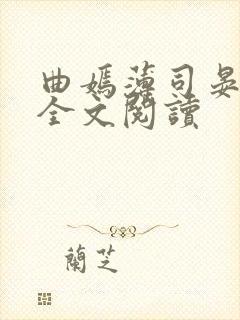 曲嫣薄司晏
全文閱讀
蘭芝